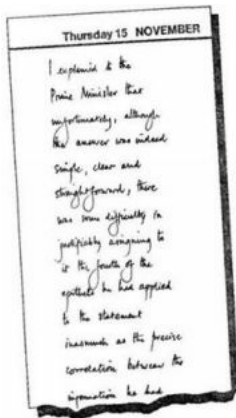 Thursday 15 NOVEMBER
I explained to the
Prime Minister that
unfortunately, although
the answer was indeed
simple, clear and
straightforward, there
was some difficulty in
justifiably assigning to
it the fourth of the
epithets he had applied
to the statement
inasmuch as the precise
correlation between the
information he had